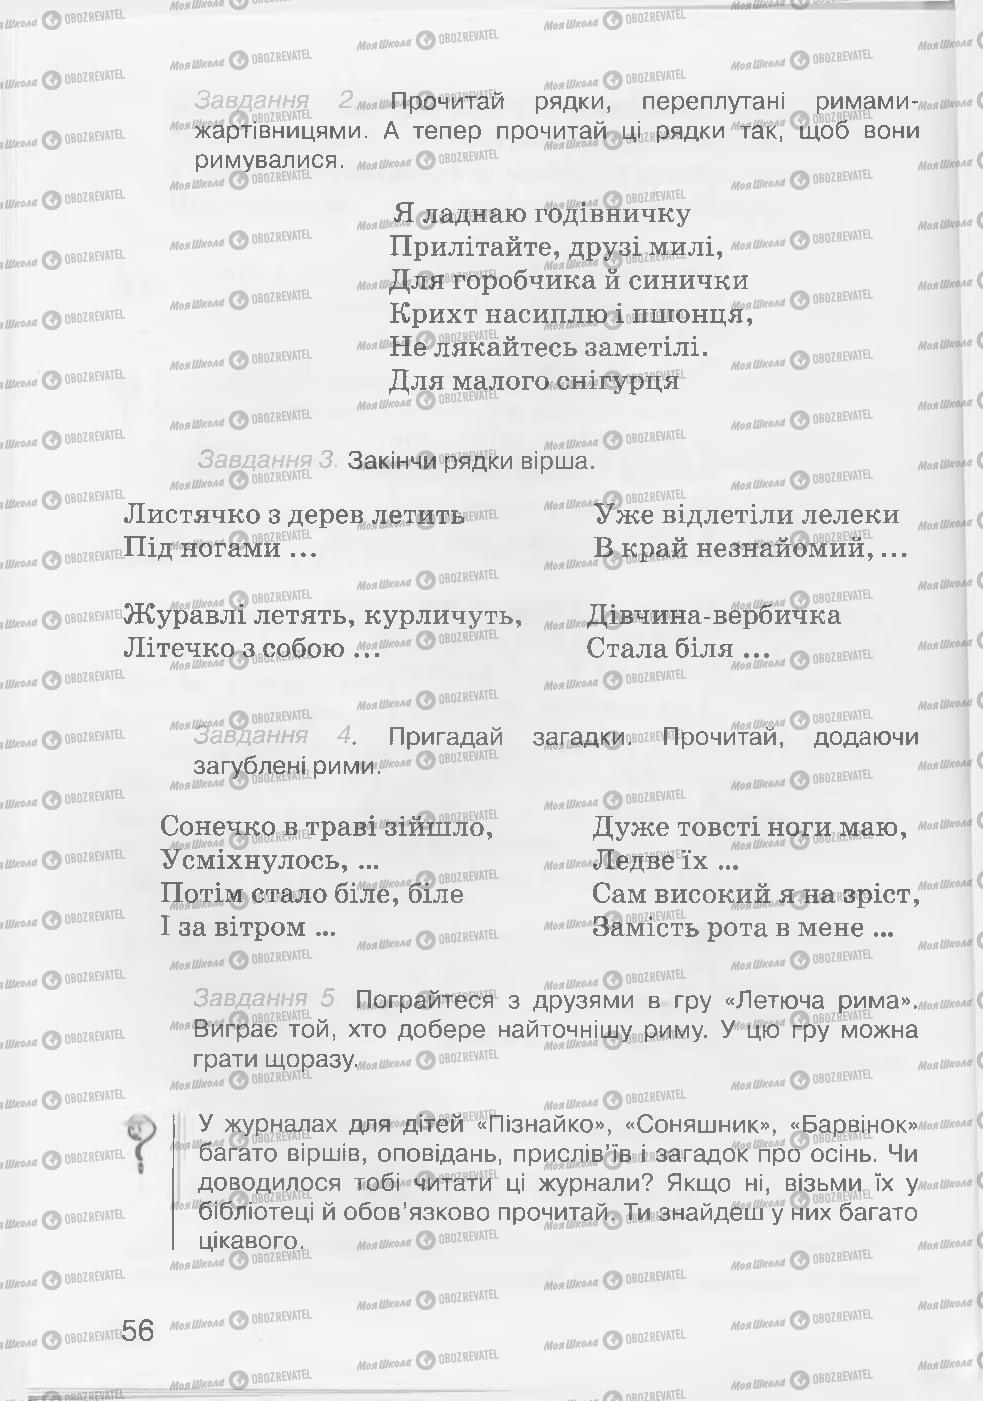 Завдання 2. Прочитай рядки, переплутані римами-
жартівницями. А тепер прочитай ці рядки так, щоб вони
римувалися.
Я ладнаю годівничку
Прилітайте, друзі милі,
Для горобчика й синички
Крихт насиплю і пшонця,
Не лякайтесь заметілі.
Для малого снігурця
Завдання 3. Закінчи рядки вірша.
Листячко з дерев летить
Під ногами ...
Уже відлетіли лелеки
В край незнайомий, ...
Журавлі летять, курличуть,
Літечко з собою ...
Дівчина-вербичка
Стала біля ...
Завдання 4. Пригадай загадки. Прочитай, додаючи
загублені рими.
Сонечко в траві зійшло,
Усміхнулось, ...
Потім стало біле, біле
І за вітром ...
Дуже товсті ноги маю,
Ледве їх ...
Сам високий я на зріст,
Замість рота в мене ...
Завдання 5. Пограйтеся з друзями в гру «Летюча рима».
Виграє той, хто добере найточнішу риму. У цю гру можна
грати щоразу.
У журналах для дітей «Пізнайко», «Соняшник», «Барвінок»
багато віршів, оповідань, прислів'їв і загадок про осінь. Чи
доводилося тобі читати ці журнали? Якщо ні, візьми їх у
бібліотеці й обов'язково прочитай. Ти знайдеш у них багато
цікавого.
56
МояШкола OBOZREVATEL